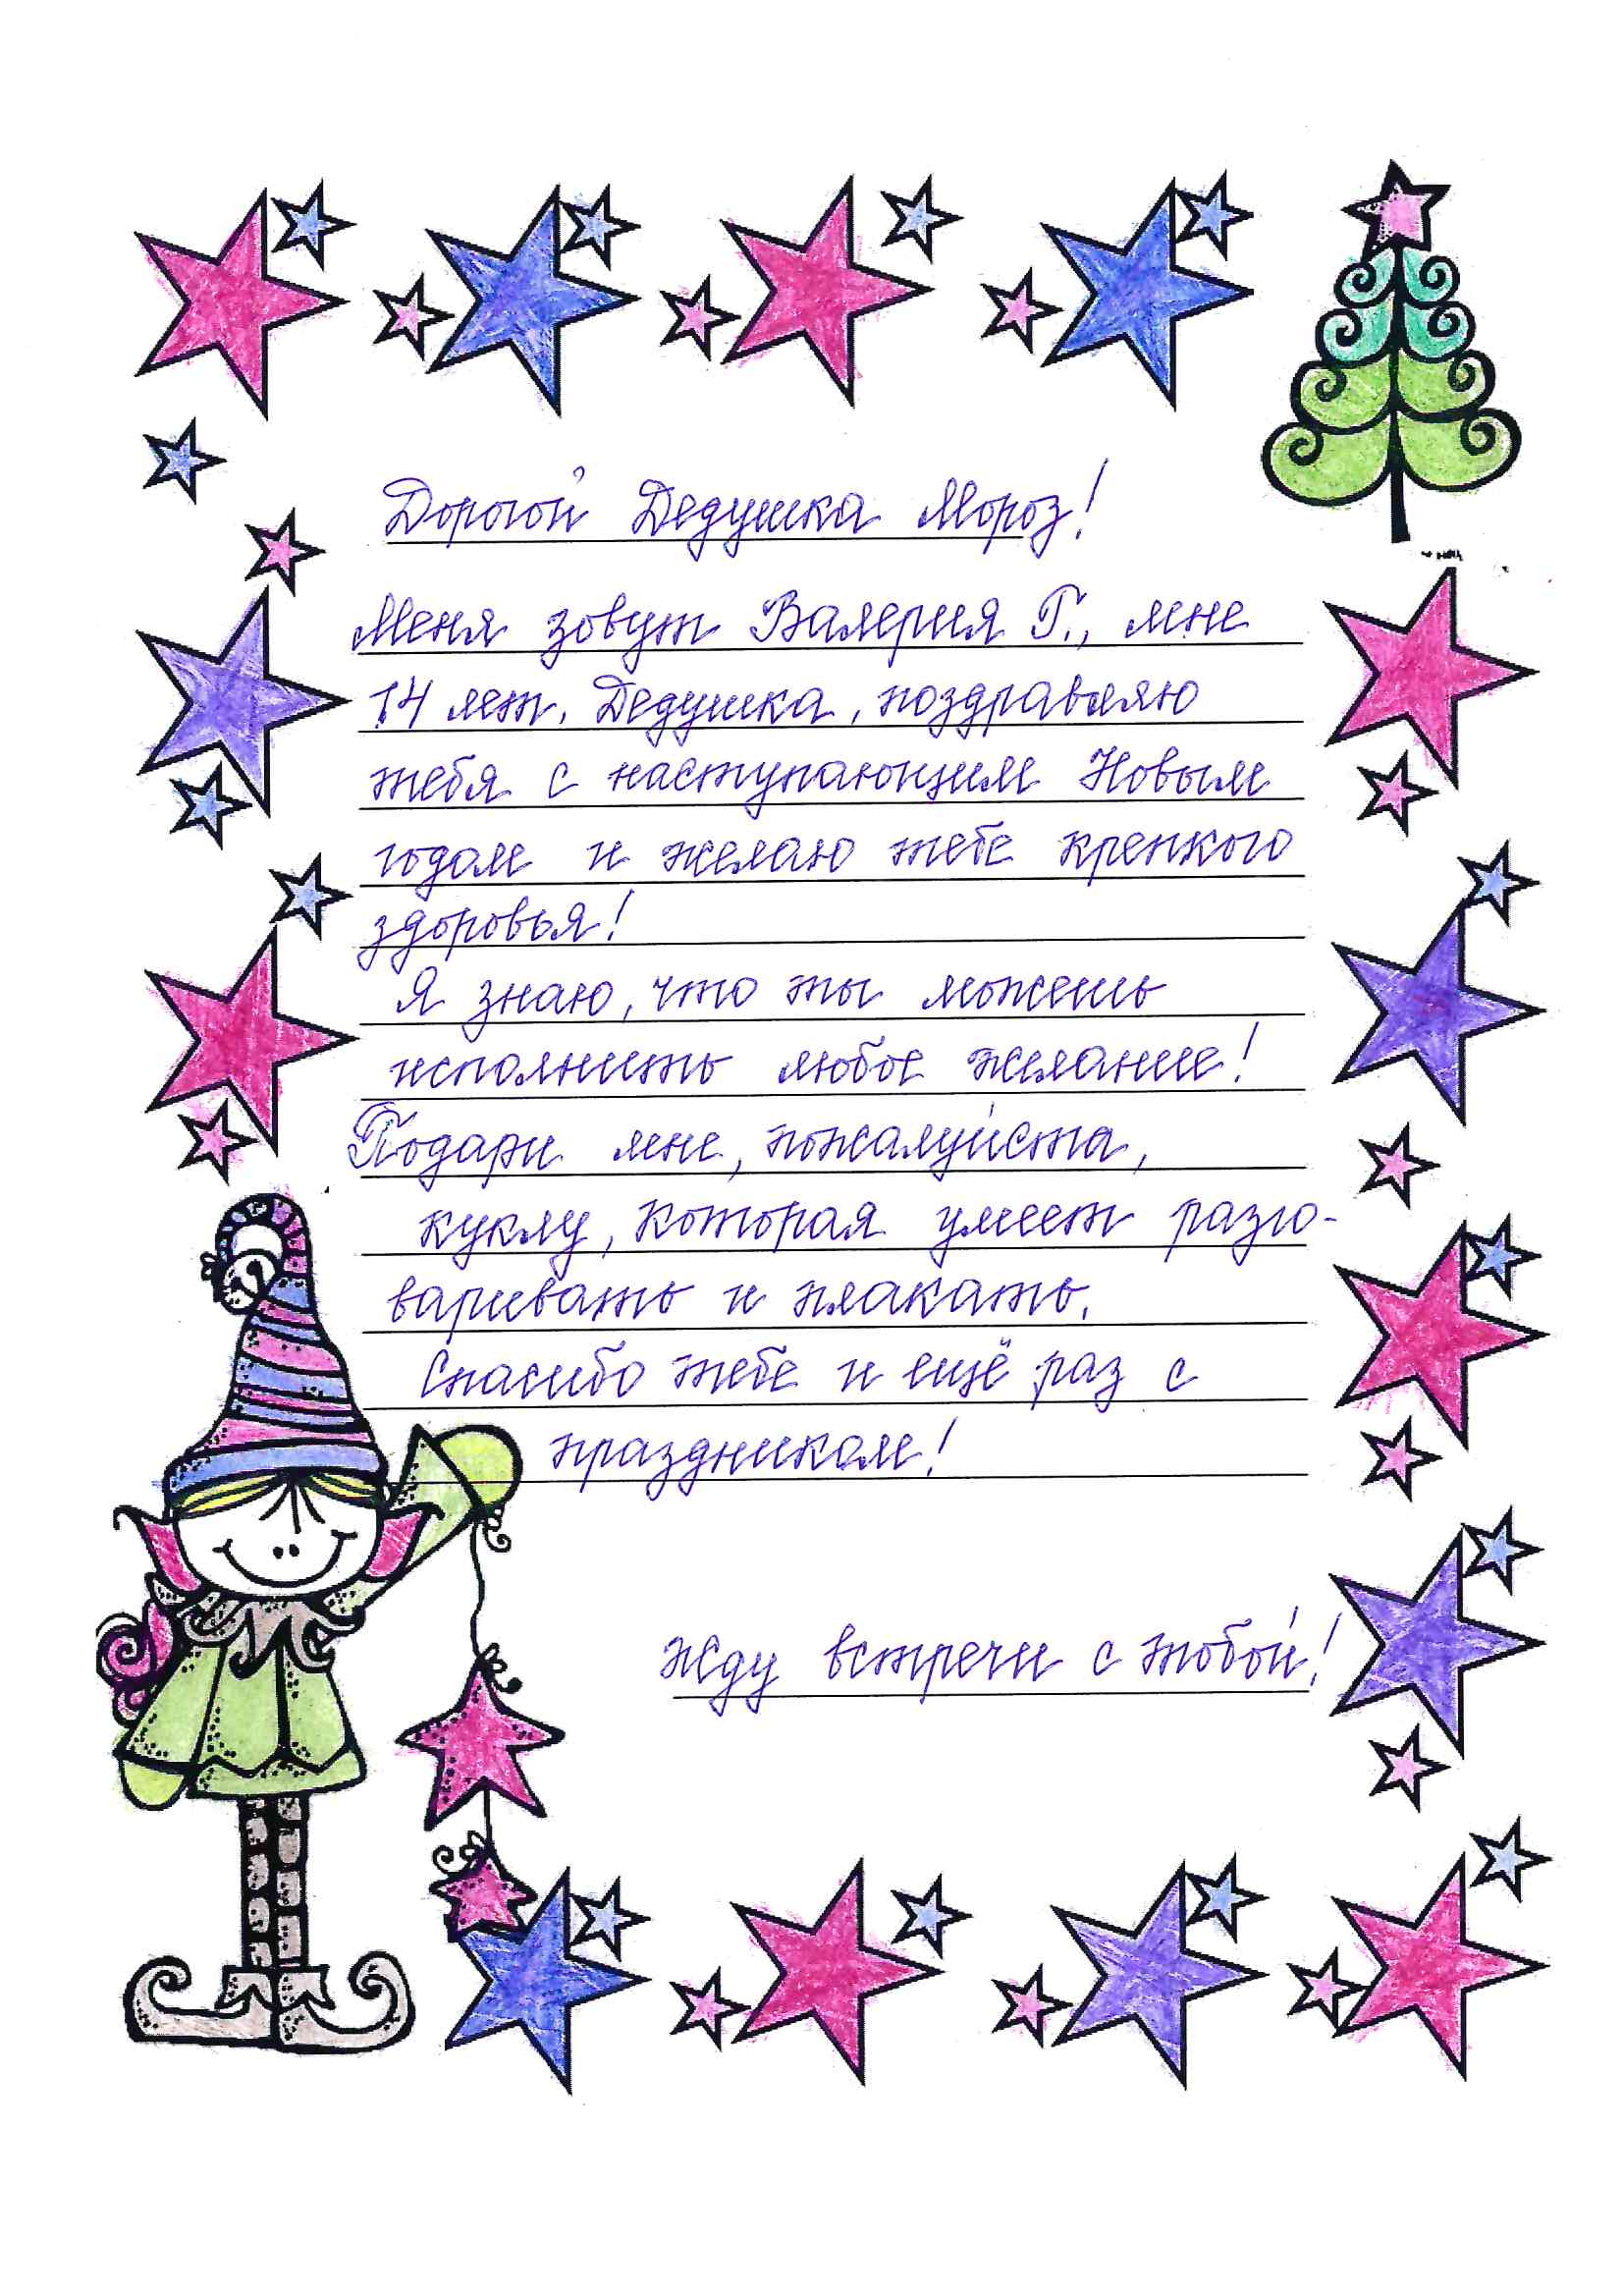 Дорогой Дедушка Мороз!
Меня зовут Валерия Г., мне
14 лет. Дедушка, поздравляю
тебя с наступающим Новым
годом и желаю тебе крепкого
здоровья!
Я знаю, что ты можешь
исполнить любое желание!
Подари мне, пожалуйста,
куклу, которая умеет разго-
варивать и плакать.
Спасибо тебе и ещё раз с
праздником!
Жду встречи с тобой!